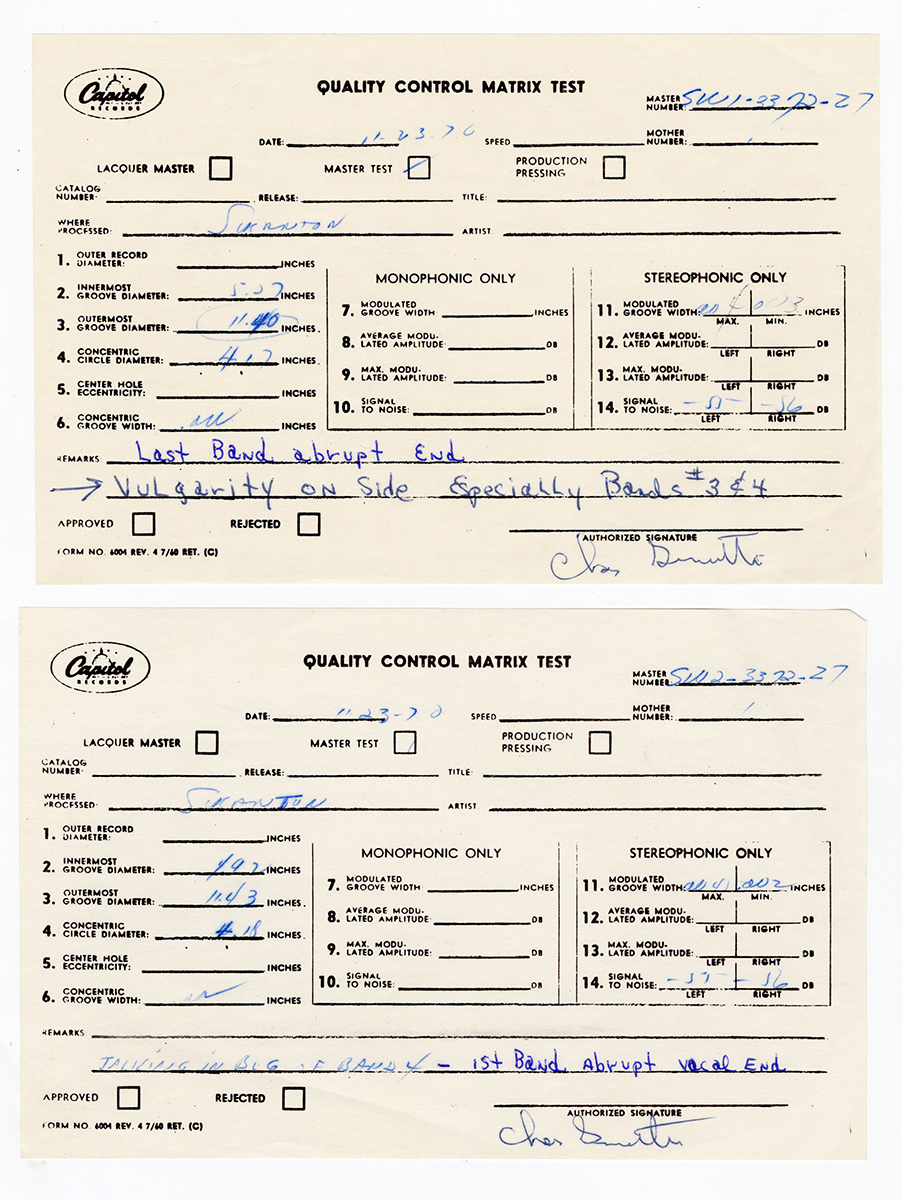 Capitol
RECORDS
QUALITY CONTROL MATRIX TEST
MASTER NUMBER: SW1-3372-27
DATE: 11-23-70 SPEED MOTHER NUMBER:
LACQUER MASTER MASTER TEST PRODUCTION PRESSING
CATALOG NUMBER: RELEASE: TITLE:
WHERE PROCESSED: SCRANTON ARTIST
1. OUTER RECORD DIAMETER: INCHES
2. INNERMOST GROOVE DIAMETER: 5.27 INCHES
3. OUTERMOST GROOVE DIAMETER: 11.40 INCHES.
4. CONCENTRIC CIRCLE DIAMETER: 4.17 INCHES.
5. CENTER HOLE ECCENTRICITY: INCHES
6. CONCENTRIC GROOVE WIDTH: INCHES
MONOPHONIC ONLY
7. MODULATED GROOVE WIDTH: INCHES
8. AVERAGE MODULATED AMPLITUDE: DB
9. MAX. MODULATED AMPLITUDE: DB
10. SIGNAL TO NOISE: DB
STEREOPHONIC ONLY
11. MODULATED GROOVE WIDTH: INCHES
MAX. MIN.
12. AVERAGE MODULATED AMPLITUDE: DB
LEFT RIGHT
13. MAX. MODULATED AMPLITUDE: DB
LEFT RIGHT
14. SIGNAL TO NOISE: -55 -56 DB
LEFT RIGHT
REMARKS Last Band abrupt End
→ Vulgarity on Side Especially Bands #3 & 4
APPROVED REJECTED
AUTHORIZED SIGNATURE
FORM NO. 6004 REV. 4 7/60 RET. (C)
Chas
Capitol
RECORDS
QUALITY CONTROL MATRIX TEST
MASTER NUMBER: SW2-3372-27
DATE: 11-23-70 SPEED MOTHER NUMBER: 1
LACQUER MASTER MASTER TEST PRODUCTION PRESSING
CATALOG NUMBER: RELEASE: TITLE:
WHERE PROCESSED: SCRANTON ARTIST
1. OUTER RECORD DIAMETER: INCHES
2. INNERMOST GROOVE DIAMETER: 4.92 INCHES
3. OUTERMOST GROOVE DIAMETER: 11.43 INCHES.
4. CONCENTRIC CIRCLE DIAMETER: 4.18 INCHES.
5. CENTER HOLE ECCENTRICITY: INCHES
6. CONCENTRIC GROOVE WIDTH: INCHES
MONOPHONIC ONLY
7. MODULATED GROOVE WIDTH: INCHES
8. AVERAGE MODULATED AMPLITUDE: DB
9. MAX. MODULATED AMPLITUDE: DB
10. SIGNAL TO NOISE: DB
STEREOPHONIC ONLY
11. MODULATED GROOVE WIDTH: .002 INCHES
MAX. MIN.
12. AVERAGE MODULATED AMPLITUDE: DB
LEFT RIGHT
13. MAX. MODULATED AMPLITUDE: DB
LEFT RIGHT
14. SIGNAL TO NOISE: -55 -56 DB
LEFT RIGHT
REMARKS
TALKING IN BEG OF BAND 4 - 1st Band Abrupt vocal End
APPROVED REJECTED
AUTHORIZED SIGNATURE
FORM NO. 6004 REV. 4 7/60 RET. (C)
Chas